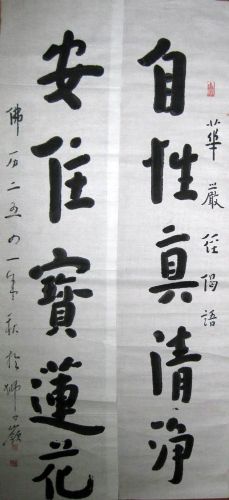 華嚴經偈語
自性真清淨
安住寶蓮花
佛历二五四一年秋於獅子巖